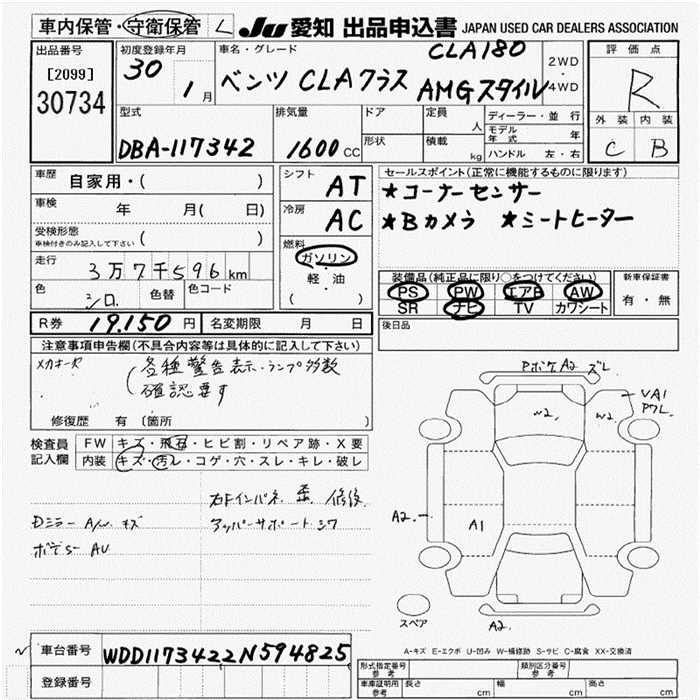 車内保管・守衛保管 L JU 愛知 出品申込書 JAPAN USED CAR DEALERS ASSOCIATION
出品番号 初度登録年月 車名・グレード 評価点
[2099] 30 1月 ベンツ CLAクラス CLA180 2WD・4WD R
30734 AMGスタイル
型式 排気量 ドア 定員 人 ディーラー・並行 外装 内装
モデル年式 年
DBA-117342 1600cc 形状 積載 kg ハンドル 左・右 C B
車歴 自家用・( ) シフト AT セールスポイント(正常に機能するものに限ります)
車検 年 月( 日) 冷房 AC ★コーナーセンサー
★Bカメラ ★シートヒーター
受検形態 ( )
車検付きのみ記入して下さい
燃料 ガソリン
軽・油
( )
走行 3万7千596km
装備品(純正品に限り○をつけてください) 新車保証書
色 シロ 色替 色コード PS PW エアB AW 有・無
SR ナビ TV カワシート
R券 19,150円 名変期限 月 日 後日品
注意事項申告欄(不具合内容等は具体的に記入して下さい)
メカキーヤ (各種警告表示・ランプ多数
確認要す
修復歴 有 〔箇所
検査員記入欄 FW キズ・飛石・ヒビ割・リペア跡・X要
内装 キズ・汚レ・コゲ・穴・スレ・キレ・破レ
右Fインパネ 歪 修復
Dミラー A/W キズ アッパーサポートシワ
ボデS AU
PボケA2 ズレ
W2 W2 VA1
Pワレ
A2 A1
スペア A2
A-キズ E-エクボ U-凹み W-補修跡 S-サビ C-腐食 XX-交換済
車台番号 WDD1173422N594825
登録番号
形式指定番号 参考 類別区分番号 参考
車庫証明用 参考 長さ cm 幅 cm 高さ cm